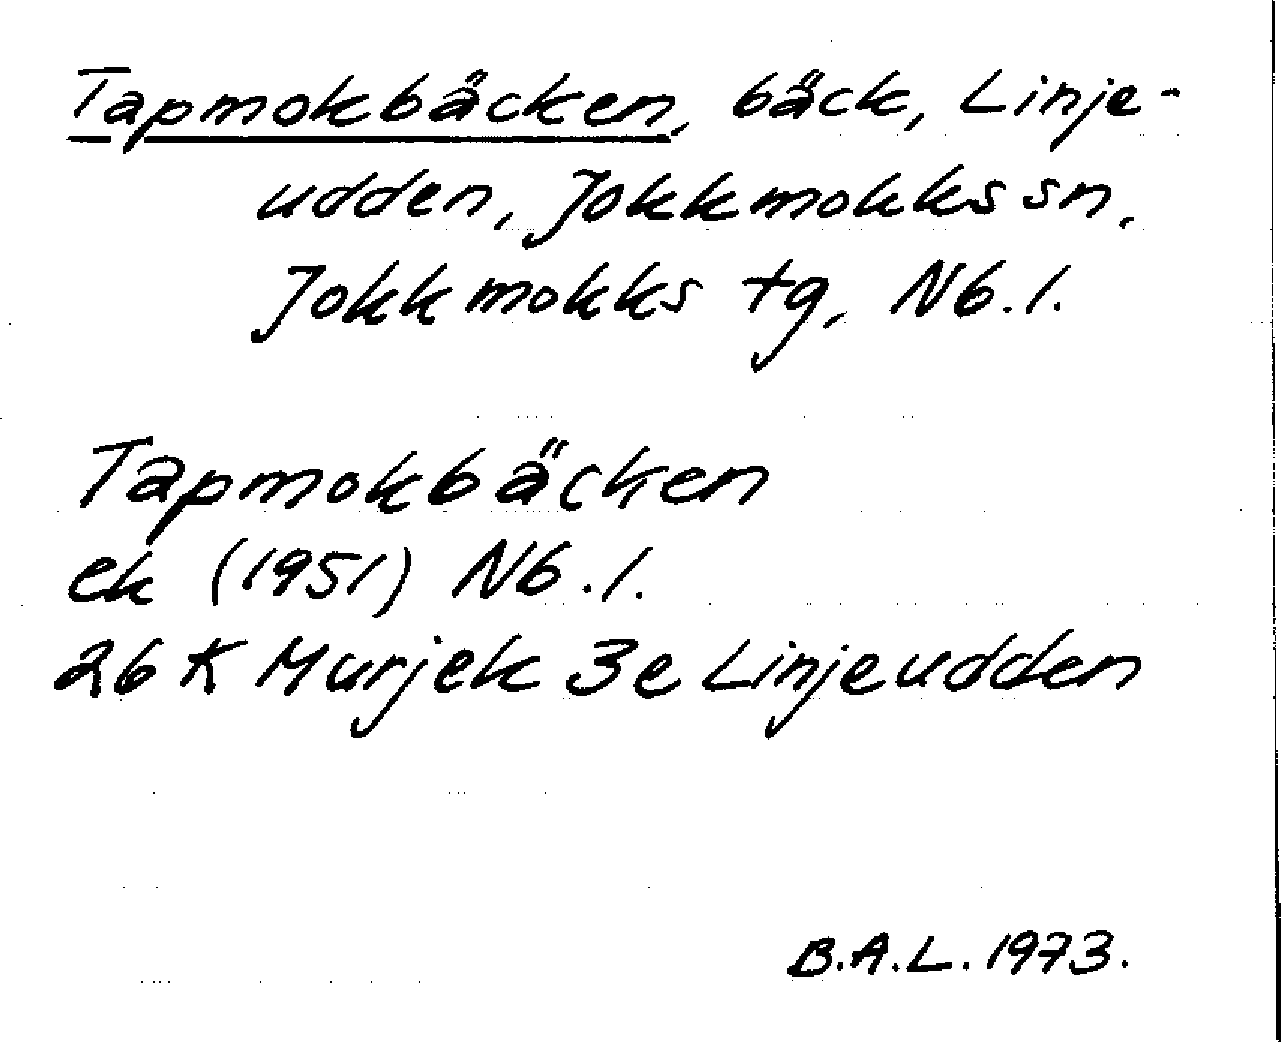 Tapmokbäcken, bäck, Linje-
udden, Jokkmokks sn,
Jokkmokks tg, Nb.l.
Tapmokbäcken
ek (1951) Nb.l.
26 K Murjek 3e Linjeudden
B.A.L. 1973.